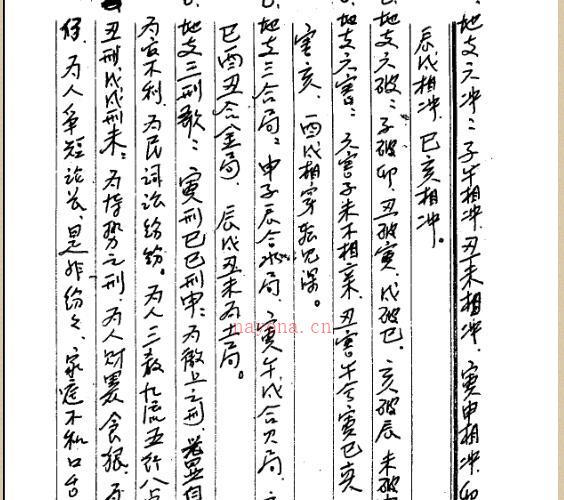 地支六冲：子午相冲、丑未相冲、寅申相冲、卯
辰戌相冲、巳亥相冲。
地支六破：子破卯、丑破寅、戌破巳、亥破辰、未破
地支六害：六害子未不相亲、丑害午兮寅巳
害亥、酉戌相穿
地支三合局：申子辰合水局、寅午戌合火局、
巳酉丑合金局、辰戌丑未为土局。
地支三刑歌：寅刑巳巳刑申：为
为官不利、为民词讼纷纷。为人三教九流五行八
丑刑戌戌刑未：为恃势之刑、为人财累
为人争短论长、是非纷々、家庭不和口舌
nayona.cn